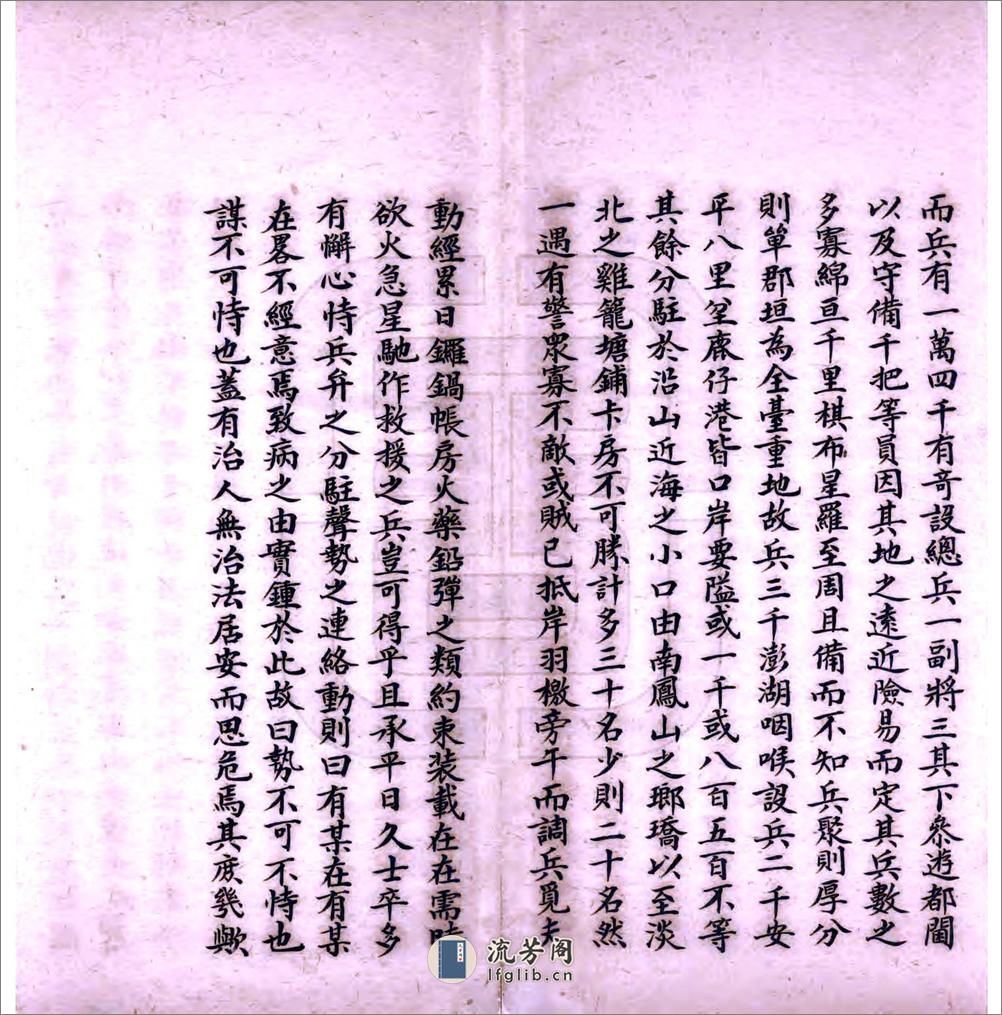 而兵有一萬四千有奇設總兵一副將三其下叅遊都閫
以及守備千把等員因其地之遠近險易而定其兵數之
多寡綿亘千里棋布星羅至周且備而不知兵聚則厚分
則單郡垣為全臺重地故兵三千澎湖咽喉設兵二千安
平八里坌鹿仔港皆口岸要隘或一千或八百五百不等
其餘分駐於沿山近海之小口由南鳳山之瑯𤩝以至淡
北之雞籠塘鋪卡房不可勝計多三十名少則二十名然
一遇有警眾寡不敵或賊已抵岸羽檄旁午而調兵覓夫
動經累日鑼鍋帳房火藥鉛彈之類約束装載在在需時
欲火急星馳作救援之兵豈可得乎且承平日久士卒多
有懈心恃兵弁之分駐聲勢之連絡動則曰有某在有某
在畧不經意焉致病之由實鍾於此故曰勢不可不恃也
謀不可恃也蓋有治人無治法居安而思危焉其庻幾歟
流芳阁
lfglib.cn